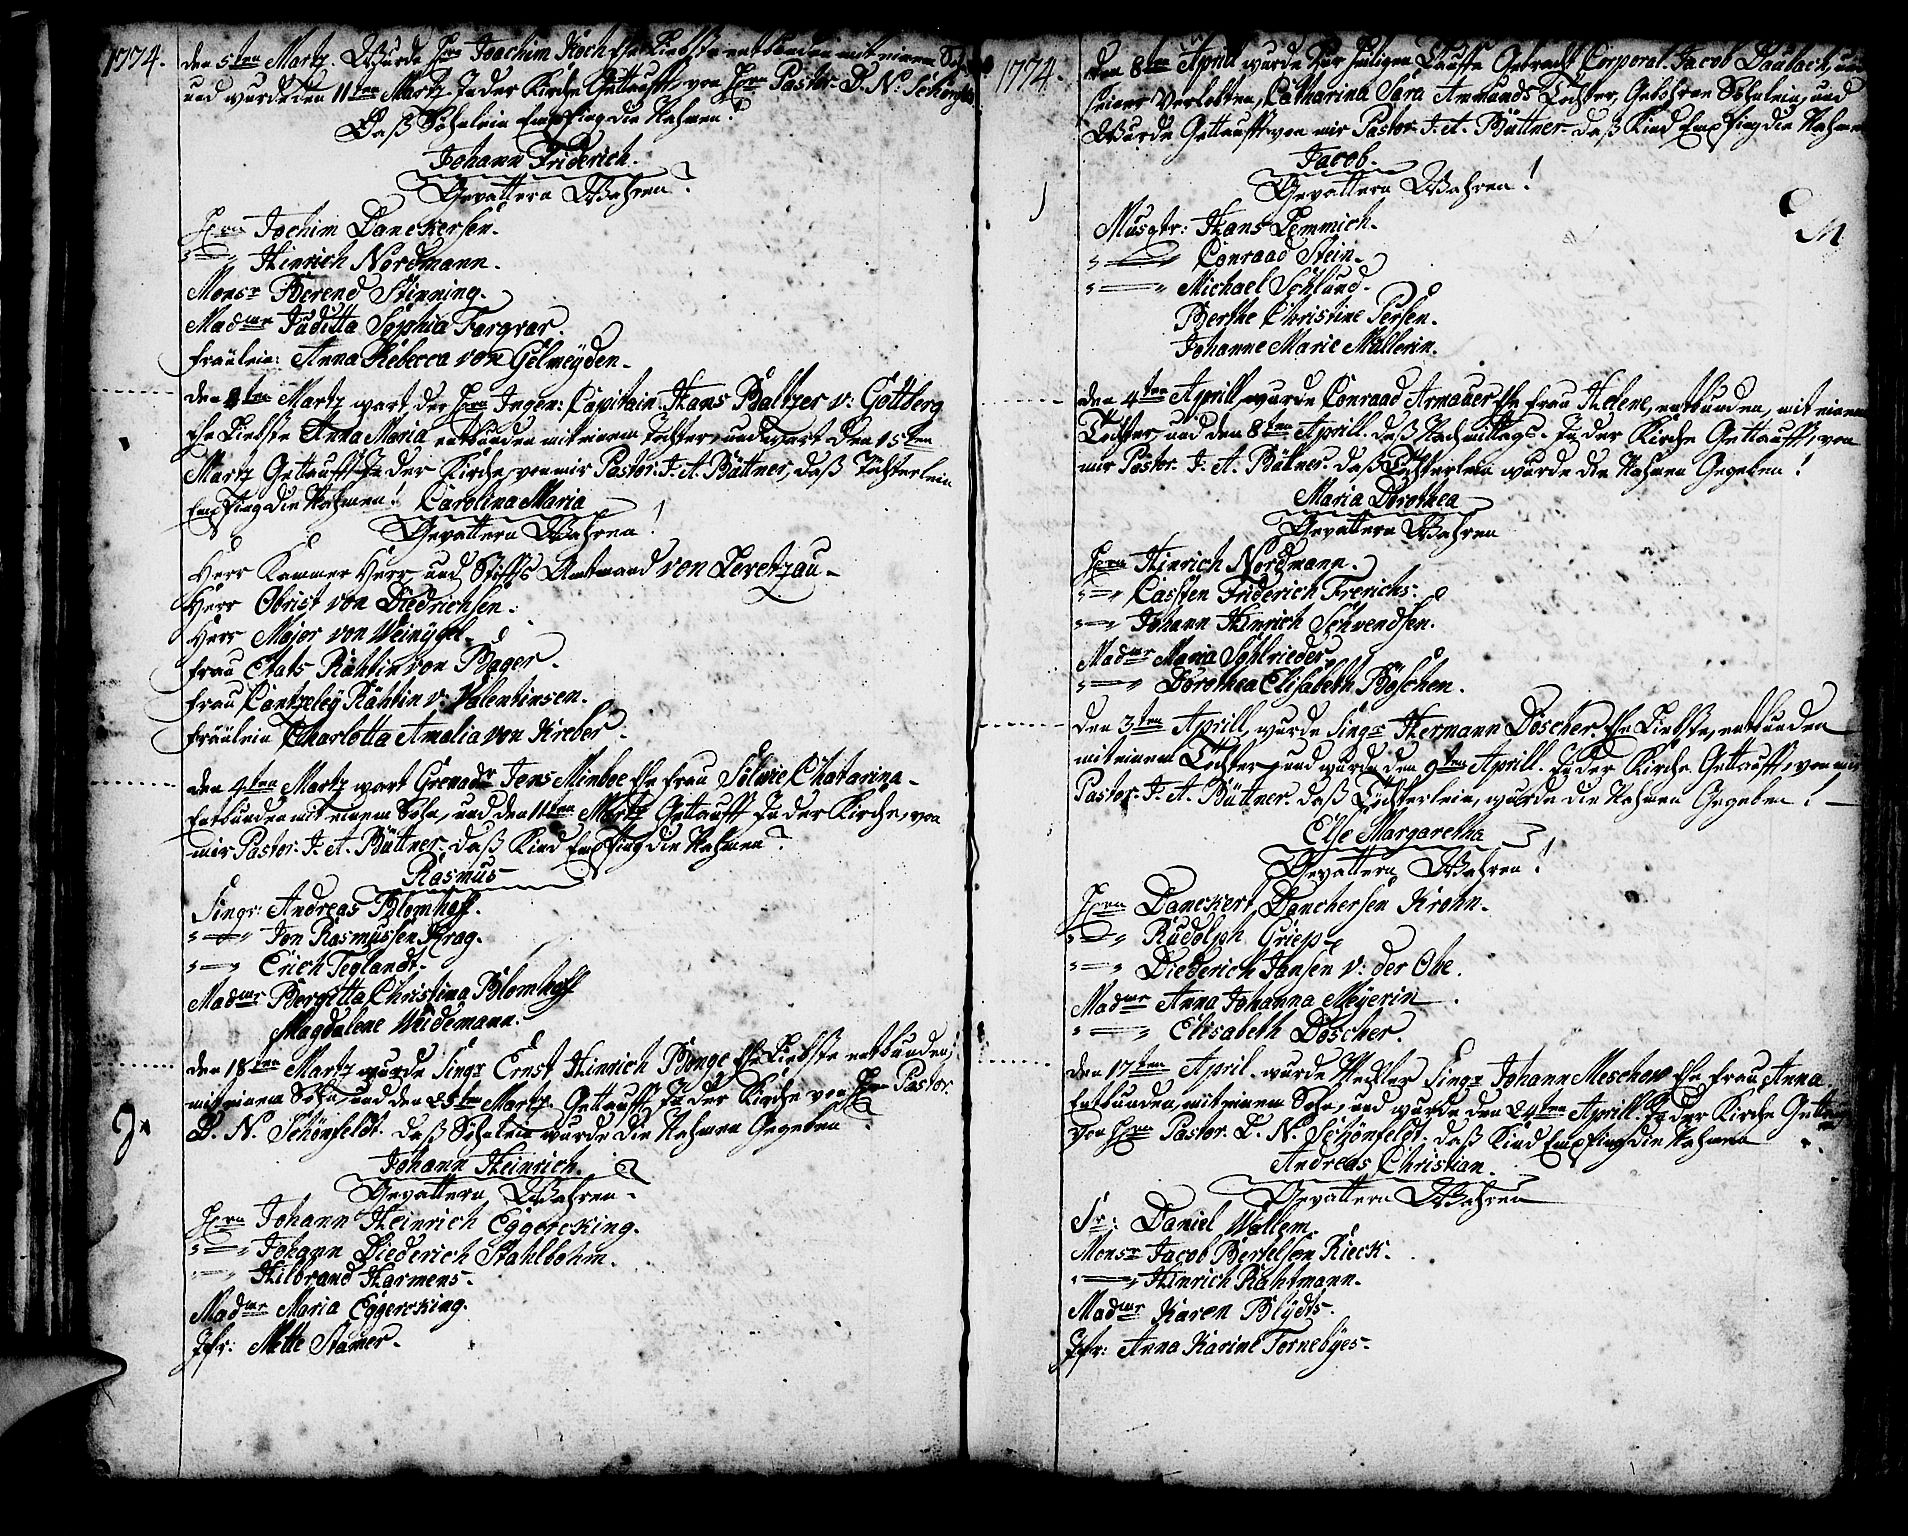 1774. den 5ten Martz. Wurde Hrn Joachim Koch Ehe Liebste entbunden mit einem
und wurde den 11ten Martz In der Kirche Gettaufft, von Hrn Pastor D. N. Schönfeldt
Daß Söhnlein Empfing die Nahmen?
Johann Friderich.
Gevattern Wahren?
Hrn Jochim Danckersen.
" Hinrich Nordmann.
Monsr Berend Stinning.
Madme Juditta Sophia Fargrar.
Fräulein: Anna Rebecca von Gelmeyden.
den 8ten Martz wart der Hrn Ingen: Capitain. Hans Baltzer v: Gottberg
Ehe Liebste Anna Maria entbunden mit einem Tochter, und wart den 15ten
Martz Gettaufft In der Kirche, von mir Pastor. J. A. Büttner, daß Töchterlein
Empfing die Nahmen! Carolina Maria
Gevattern Wahren!
Herr Kammer Herr, und Stiffts Amtmand von Levetzau
Herr Obrist von Diedrichsen.
Herr Major von Weinygel.
Frau Etats Rähtin von Bager.
Frau Cantzeley Rähtin v: Valentinsen.
Fräulein Charlotta Amalia von Kreber.
den 4ten Martz wart Grenadr Jens Minboe Ehe Frau Solwie Chatarina
Entbunden mit einem Sohn, und den 11ten Martz Gettaufft In der Kirche, von
mir Pastor. J. A. Büttner. daß Kind Empfing die Nahmen?
Rasmus
Singr: Andreas Blomhoff.
" Jon Rasmussen Krag.
" Erich Teglandt.
Madme Bergitta Christina Blomhoff
Magdalene Weidemann.
den 18ten Martz wurde Singr Ernst Hinrich Bonge Ehe Liebste entbunden,
mit einem Sohn, und den 25ten Martz. Gettaufft In der Kirche von Hrn Pastor
D. N. Schönfeldt. daß Söhnlein wurde die Nahmen Gegeben
Johann Heinrich.
Gevattern Wahren.
Hrn Johann Heinrich Eggercking.
" Johann Diederich Stahlbohm.
" Hilbrand Harmens.
Madme Maria Eggercking.
Jfr: Mette Stamer.
1774. den 8ten Aprill wurde Zur Heiligen Tauffe Gebracht Corporal. Jacob Paulach, und
seiner Verlobten, Catharina Sara Ammunds Tochter, Gebohrne Söhnlein, und
Wurde Gettaufft von mir Pastor. J. A. Büttner. daß Kind Empfing die Nahmen
Jacob.
Gevattern Wahren!
Musqtr: Hans Lemmich.
" Conraad Stein.
" Michael Schlund.
Berthe Christine Persen.
Johanne Marie Müllerin.
den 4ten Aprill wurde Conraad Armauer Ehe Frau Helene, entbunden, mit einem
Tochter, und den 8ten Aprill. daß Nachmittags. In der Kirche Gettaufft, von
mir Pastor. J. A. Bütner. daß Töchterlein wurde die Nahmen Gegeben!
Maria Dorothea
Gevattern Wahren
Hrn Hinrich Nordmann.
" Casten Friderich Frerichs:
" Johann Hinrich Schvendsen.
Madme Maria Schlrieder,
" Dorothea Elisabeth Böschen.
den 3ten Aprill, wurde Singr Hermann Döscher. Ehe Liebste, entbunden
mit einem Tochter, und wurde den 9ten Aprill. In der Kirche Gettaufft, von mir
Pastor. J. A. Büttner. daß Töchterlein, wurde die Nahmen Gegeben!
Else Margaretha
Gevattern Wahren!
Hrn Danckert Danchersen Krohn.
" Rudolph Griep
" Diederich Jansen v: der Ohe.
Madme Anna Johanna Meyerin.
" Elisabeth Döscher.
den 17ten April. wurde Medler Singr Johann Meschow Ehe Frau Anna
Entbunden, mit einem Sohn, und wurde den 24ten Aprill. In der Kirche
von Hrn Pastor. D. N. Schönfeldt. daß Kind Empfing die Nahmen
Andreas Christian.
Gevattern Wahren
Sr: Daniel Wallem.
Monsr Jacob Bertelsen Rieck.
" Hinrich Rahtmann.
Madme Karen Blydts.
Jfr: Anna Karine Tornebyes.